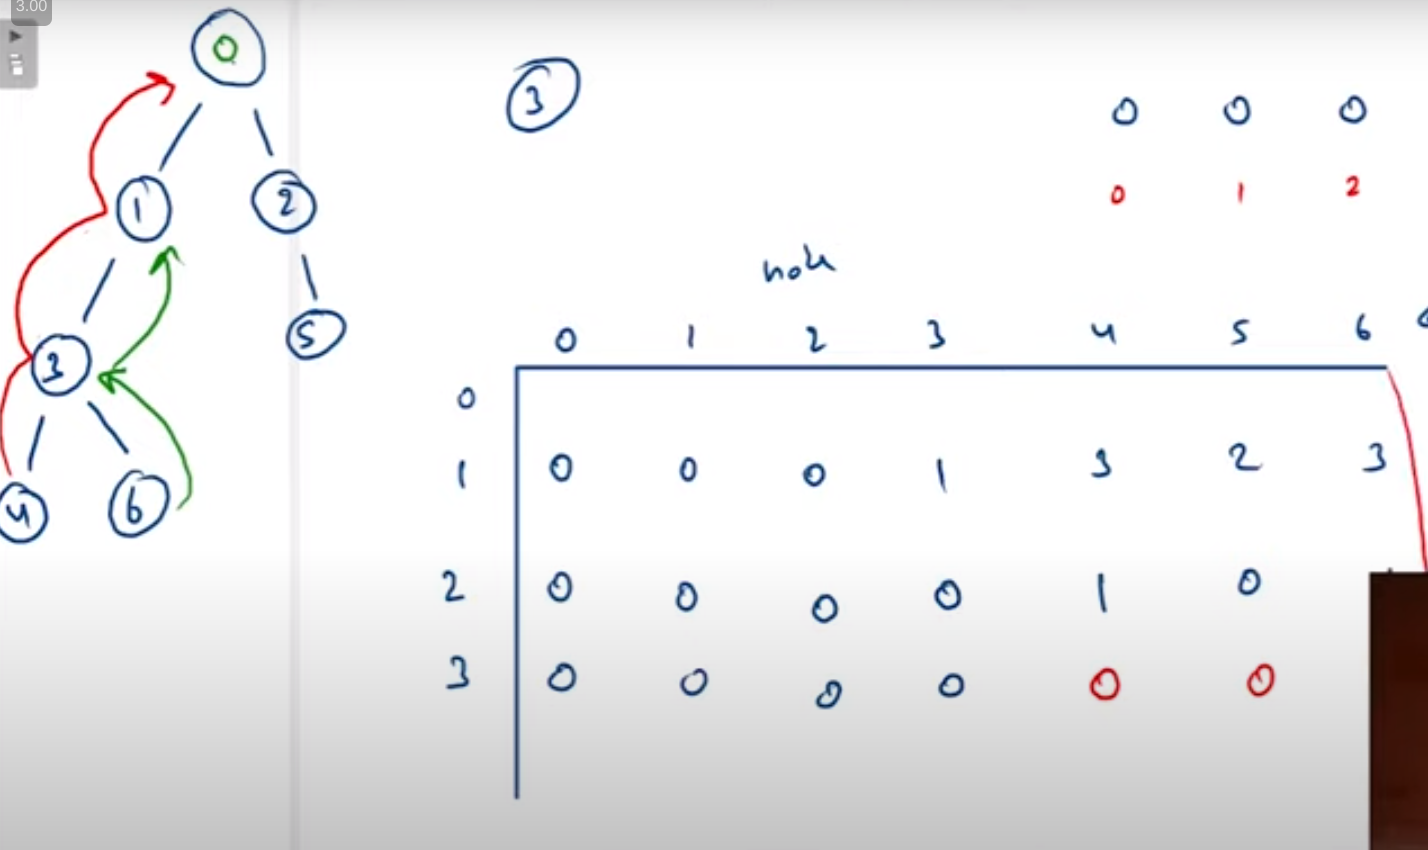 3.00
0
1 2
3 5
4 6
3
0 0 0
0 1 2
node
0 1 2 3 4 5 6
0
1 0 0 0 1 3 2 3
2 0 0 0 0 1 0
3 0 0 0 0 0 0